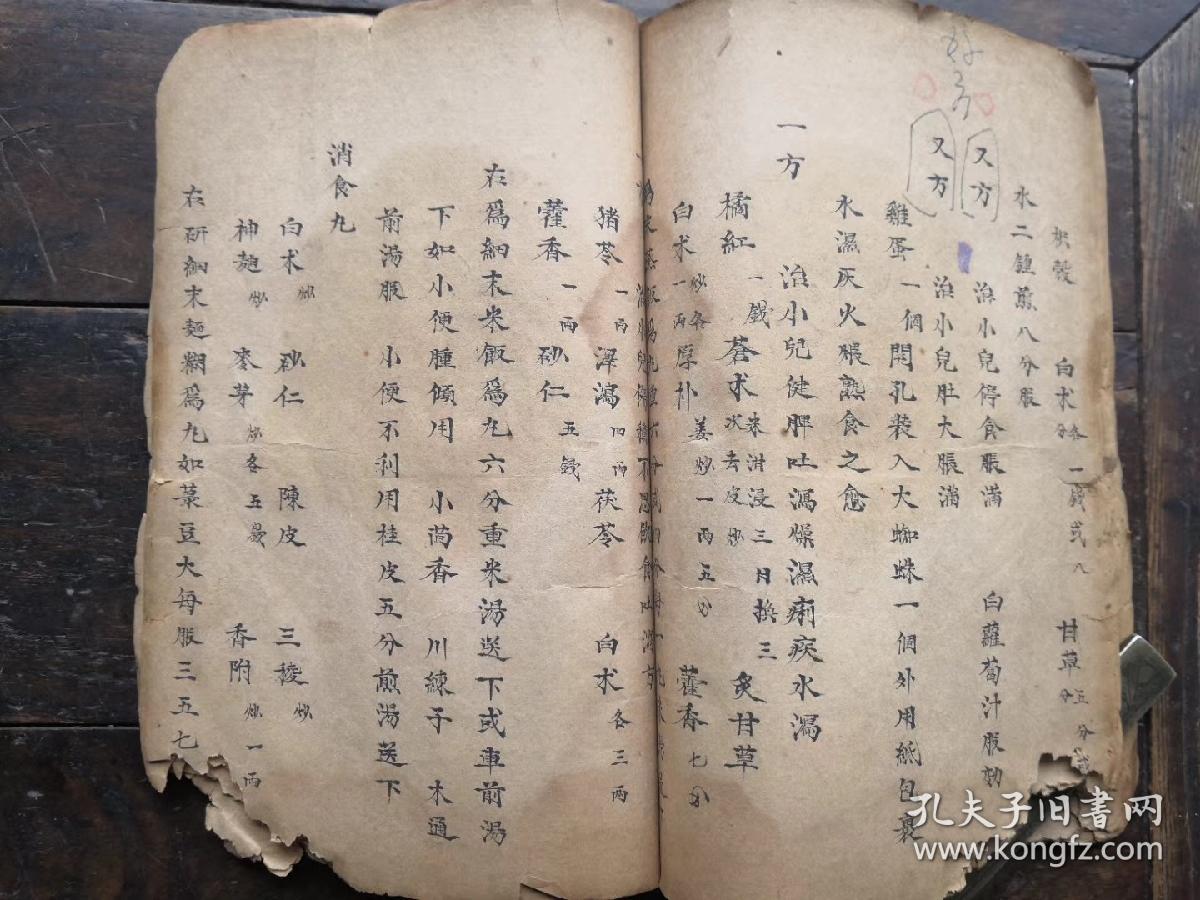 好方
枳殼 白术各 一戔或八分 甘草五分
水二鍾煎八分服
又方 治小兒停食脹滿 白蘿蔔汁服効
又方 治小兒肚大脹滿
雞蛋一個開孔裝入大蜘蛛一個外用紙包裹
水濕灰火煨熟食之愈
一方 治小兒健脾吐瀉燥濕痢疾水瀉
橘紅一戲 蒼术米泔浸三日換三次去皮炒 炙甘草
白术炒各一兩 厚朴姜炒一兩五分 藿香七分
猪苓一兩 澤瀉四兩 茯苓 白术各三兩
藿香一兩 砂仁五錢
右爲細末米飯爲丸六分重米湯送下或車前湯
下如小便腫傾用 小茴香 川練子 木通
前湯服 小便不利用桂皮五分煎湯送下
消食丸
白术炒 砂仁 陳皮 三稜炒
神麯炒 麥芽炒各五戔 香附炒一兩
右研細末麵糊爲丸如菉豆大每服三五七
孔夫子旧書网
www.kongfz.com